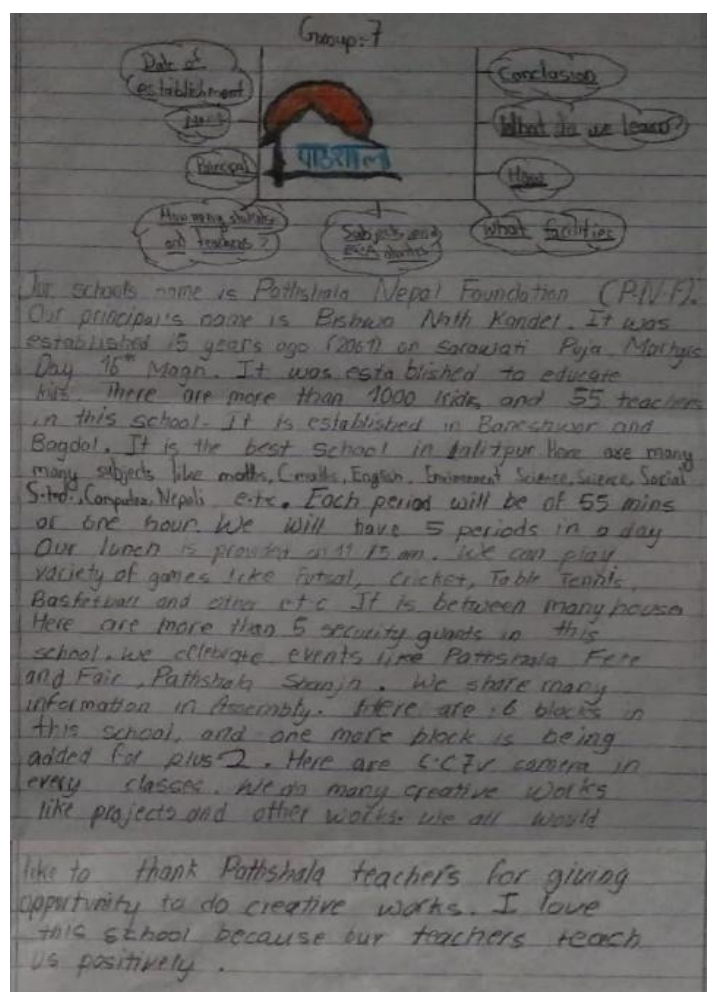 Group:7
Date of
establishment
Principal
How many students
and teachers?
Subjects and
ECA
What facilities
How
What do we learn?
Conclusion
पाठशाला
Our schools name is Pathshala Nepal Foundation (P.N.F).
Our principal's name is Bishwo Nath Kandel. It was
established 15 years ago (2061) on Sarawati Puja, Martyrs
Day 16th Magh. It was established to educate
kids. There are more than 1000 kids and 55 teachers
in this school. It is established in Baneshwor and
Bagdol. It is the best school in lalitpur Here are many
many subjects like maths, C-maths, English, Science, Science, Social
Computer, Nepali e.t.c. Each period will be of 55 mins
or one hour. We will have 5 periods in a day
Our lunch is provided on 11:15 am. We can play
variety of games like Futsal, Cricket, Table Tennis,
Basketball and other etc It is between many house
Here are more than 5 security guards in this
school. We celebrate events like Pathshala Fete
and Fair, Pathshala. We share many
information in Assembly. Here are 6 blocks in
this school, and one more block is being
added for plus 2. Here are C.C.TV camera in
every classes. We do many creative works
like projects and other works. We all would
like to thank Pathshala teachers for giving
oppurtunity to do creative works. I love
this school because our teachers teach
us positively.